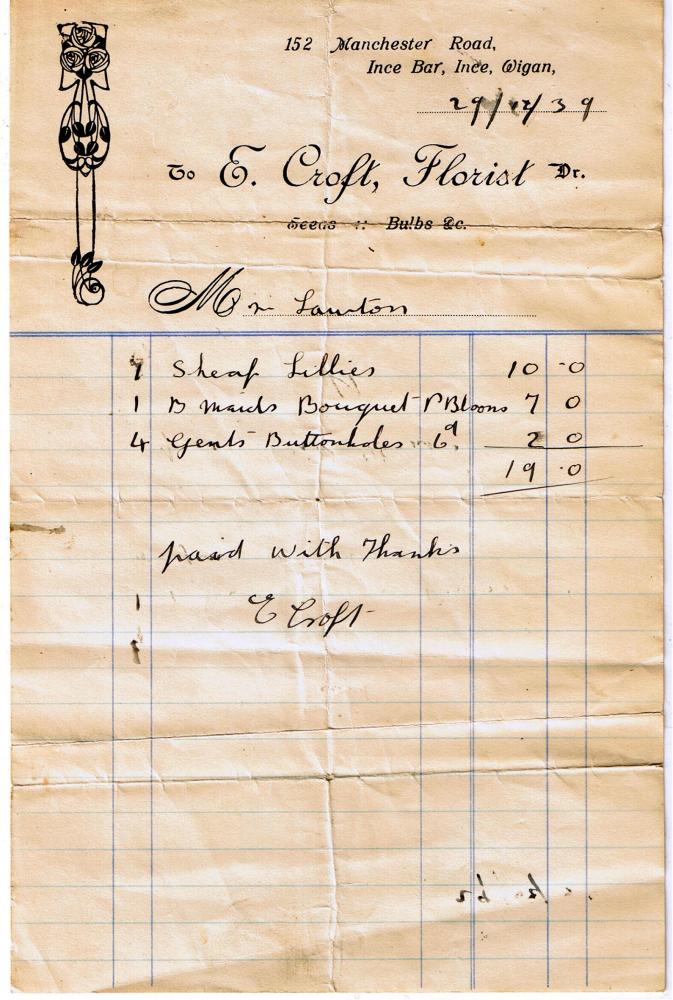 152 Manchester Road,
Ince Bar, Ince, Wigan,
29/12/39
To E. Croft, Florist Dr.
Seeds :: Bulbs &c.
Mr Lawton
1 Sheaf Lillies 10 - 0
1 B maids Bouquet P Blooms 7 0
4 Gents Buttonholes 6d 2 0
19 - 0
paid with Thanks
E Croft